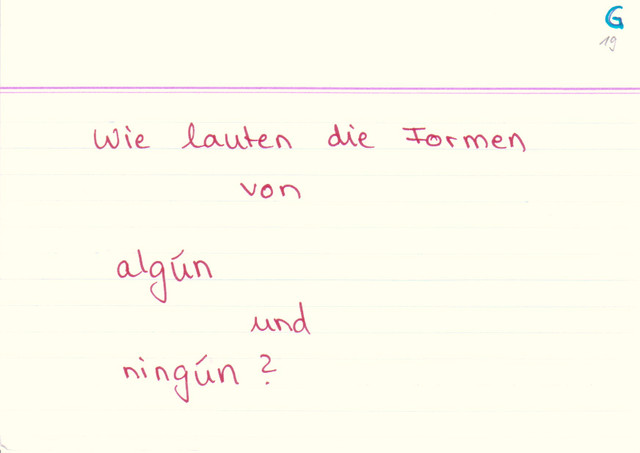 G
19
Wie lauten die Formen
von
algún
und
ningún?